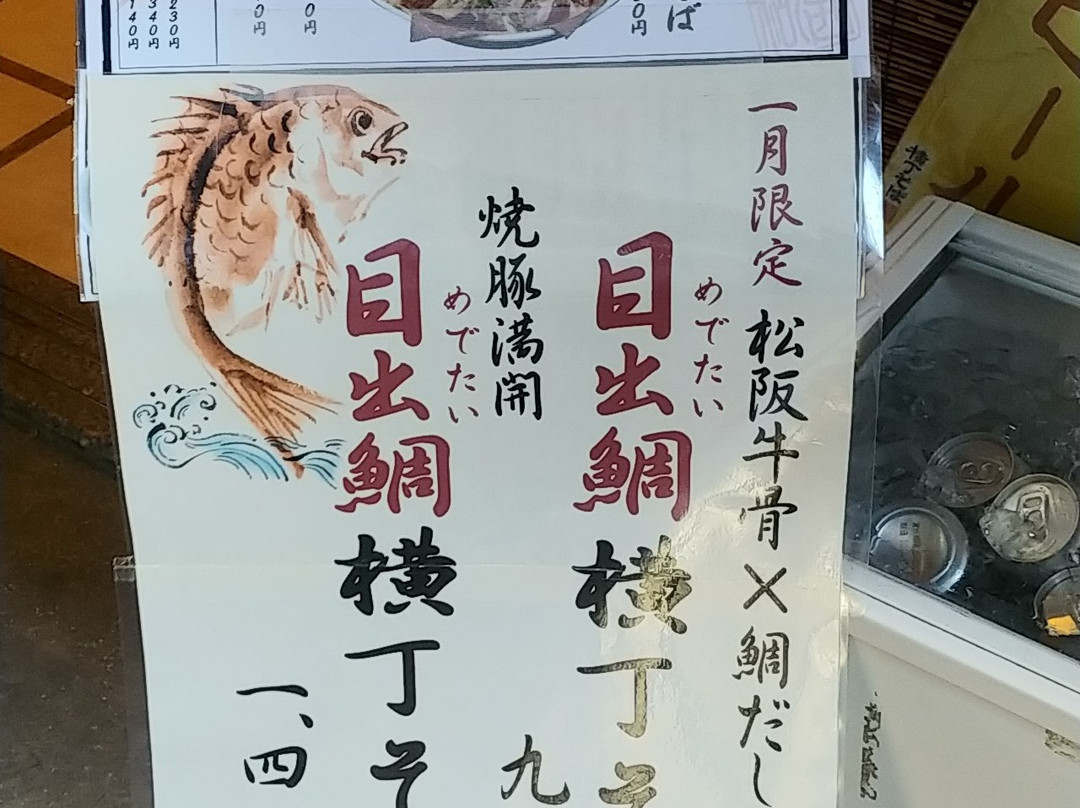 一月限定 松阪牛骨×鯛だし
めでたい
目出鯛横丁そ
九
焼豚満開
めでたい
目出鯛横丁そ
一、四
230円
340円
140円
0円
0円
0円
ば
横丁そば